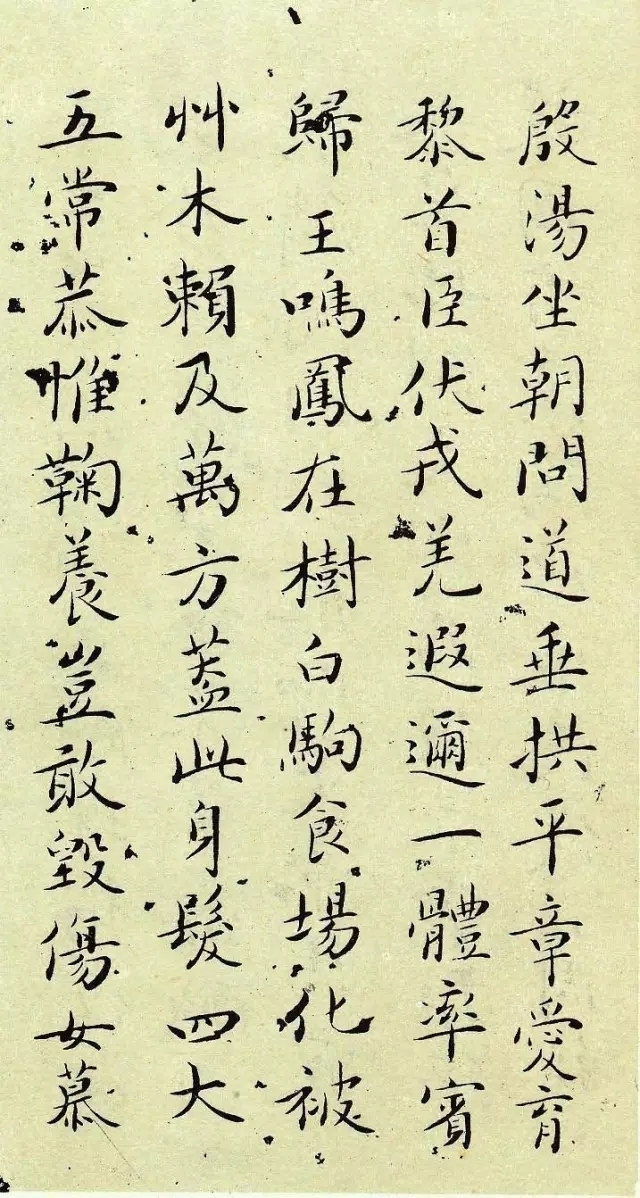 殷湯坐朝問道垂拱平章愛育
黎首臣伏戎羌遐邇一體率賓
歸王鳴鳳在樹白駒食場化被
艸木賴及萬方蓋此身髮四大
五常恭惟鞠養豈敢毀傷女慕